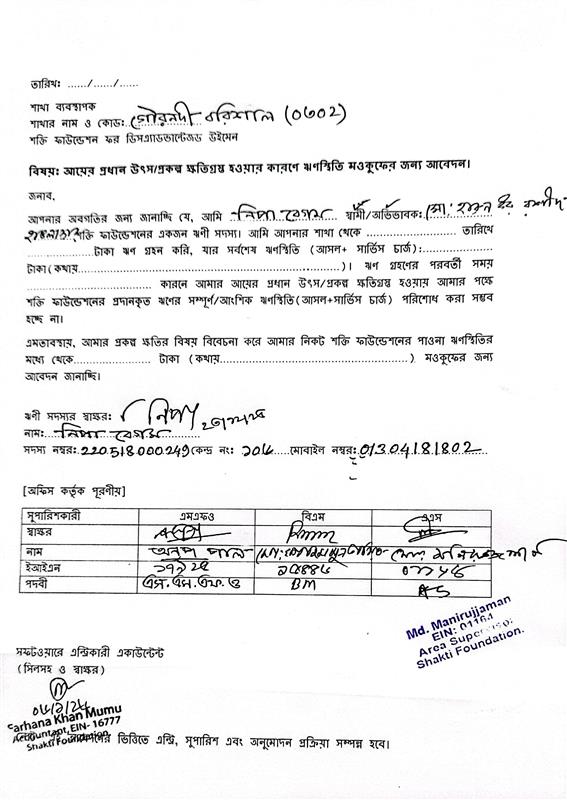 তারিখ: ....../....../......
শাখা ব্যবস্থাপক
শাখার নাম ও কোড: গৌরনদী বরিশাল (০৬০২)
শক্তি ফাউন্ডেশন ফর ডিসএ্যাডভান্টেজড উইমেন
বিষয়: আয়ের প্রধান উৎস/প্রকল্প ক্ষতিগ্রস্থ হওয়ার কারণে ঋণস্থিতি মওকুফের জন্য আবেদন।
জনাব,
আপনার অবগতির জন্য জানাচ্ছি যে, আমি নিপা বেগম স্বামী/অভিভাবক: মো:
শক্তি ফাউন্ডেশনের একজন ঋণী সদস্য। আমি আপনার শাখা থেকে ........................ তারিখে
....................টাকা ঋণ গ্রহন করি, যার সর্বশেষ ঋণস্থিতি (আসল+ সার্ভিস চার্জ):....................
টাকা(কথায়............................................................)। ঋণ গ্রহণের পরবর্তী সময়
.............................. কারনে আমার আয়ের প্রধান উৎস/প্রকল্প ক্ষতিগ্রস্থ হওয়ায় আমার পক্ষে
শক্তি ফাউন্ডেশনের প্রদানকৃত ঋণের সম্পূর্ণ/আংশিক ঋণস্থিতি(আসল+সার্ভিস চার্জ) পরিশোধ করা সম্ভব
হচ্ছে না।
এমতাবস্থায়, আমার প্রকল্প ক্ষতির বিষয় বিবেচনা করে আমার নিকট শক্তি ফাউন্ডেশনের পাওনা ঋণস্থিতির
মধ্যে থেকে...................... টাকা (কথায়..................................................) মওকুফের জন্য
আবেদন জানাচ্ছি।
ঋণী সদস্যের স্বাক্ষর: নিপা
নাম: নিপা বেগম
সদস্য নম্বর: 220518000249 কেন্দ্র নং: ১০৮ মোবাইল নম্বর: 01304181802
[অফিস কর্তৃক পূরণীয়]
সুপারিশকারী এমএফও বিএম এএস
স্বাক্ষর
নাম অনুপ পাল
ইআইএন
পদবী এস.এস.এফ.ও BM AS
Md. Manirujjaman
EIN: 01164
Area Supervisor
Shakti Foundation.
সফটওয়ারে এন্ট্রিকারী একাউন্টেন্ট
(সিলসহ ও স্বাক্ষর)
Farhana Khan Mumu
Accountant, EIN- 16777
Shakti Foundation.
ভিত্তিতে এন্ট্রি, সুপারিশ এবং অনুমোদন প্রক্রিয়া সম্পন্ন হবে।